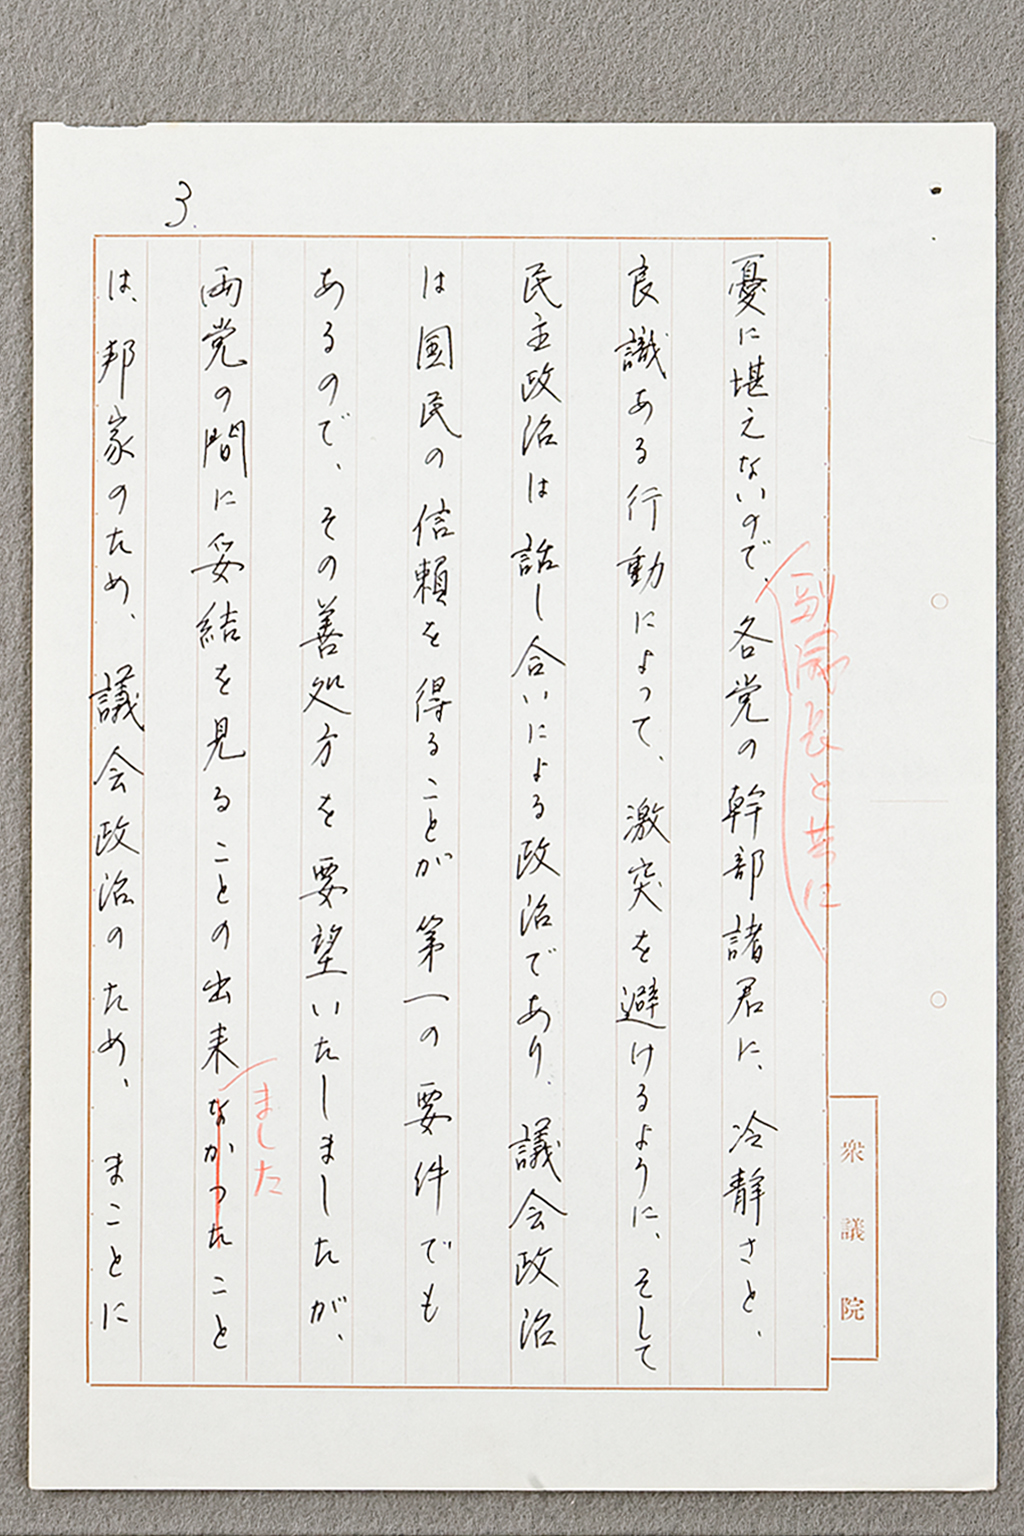 3.
副議長と共に
憂に堪えないので、各党の幹部諸君に、冷静さと、
良識ある行動によって、激突を避けるように、そして
民主政治は話し合いによる政治であり、議会政治
は国民の信頼を得ることが第一の要件でも
あるので、その善処方を要望いたしましたが、
ました
両党の間に妥結を見ることの出来なかつたこと
は、邦家のため、議会政治のため、まことに
衆議院